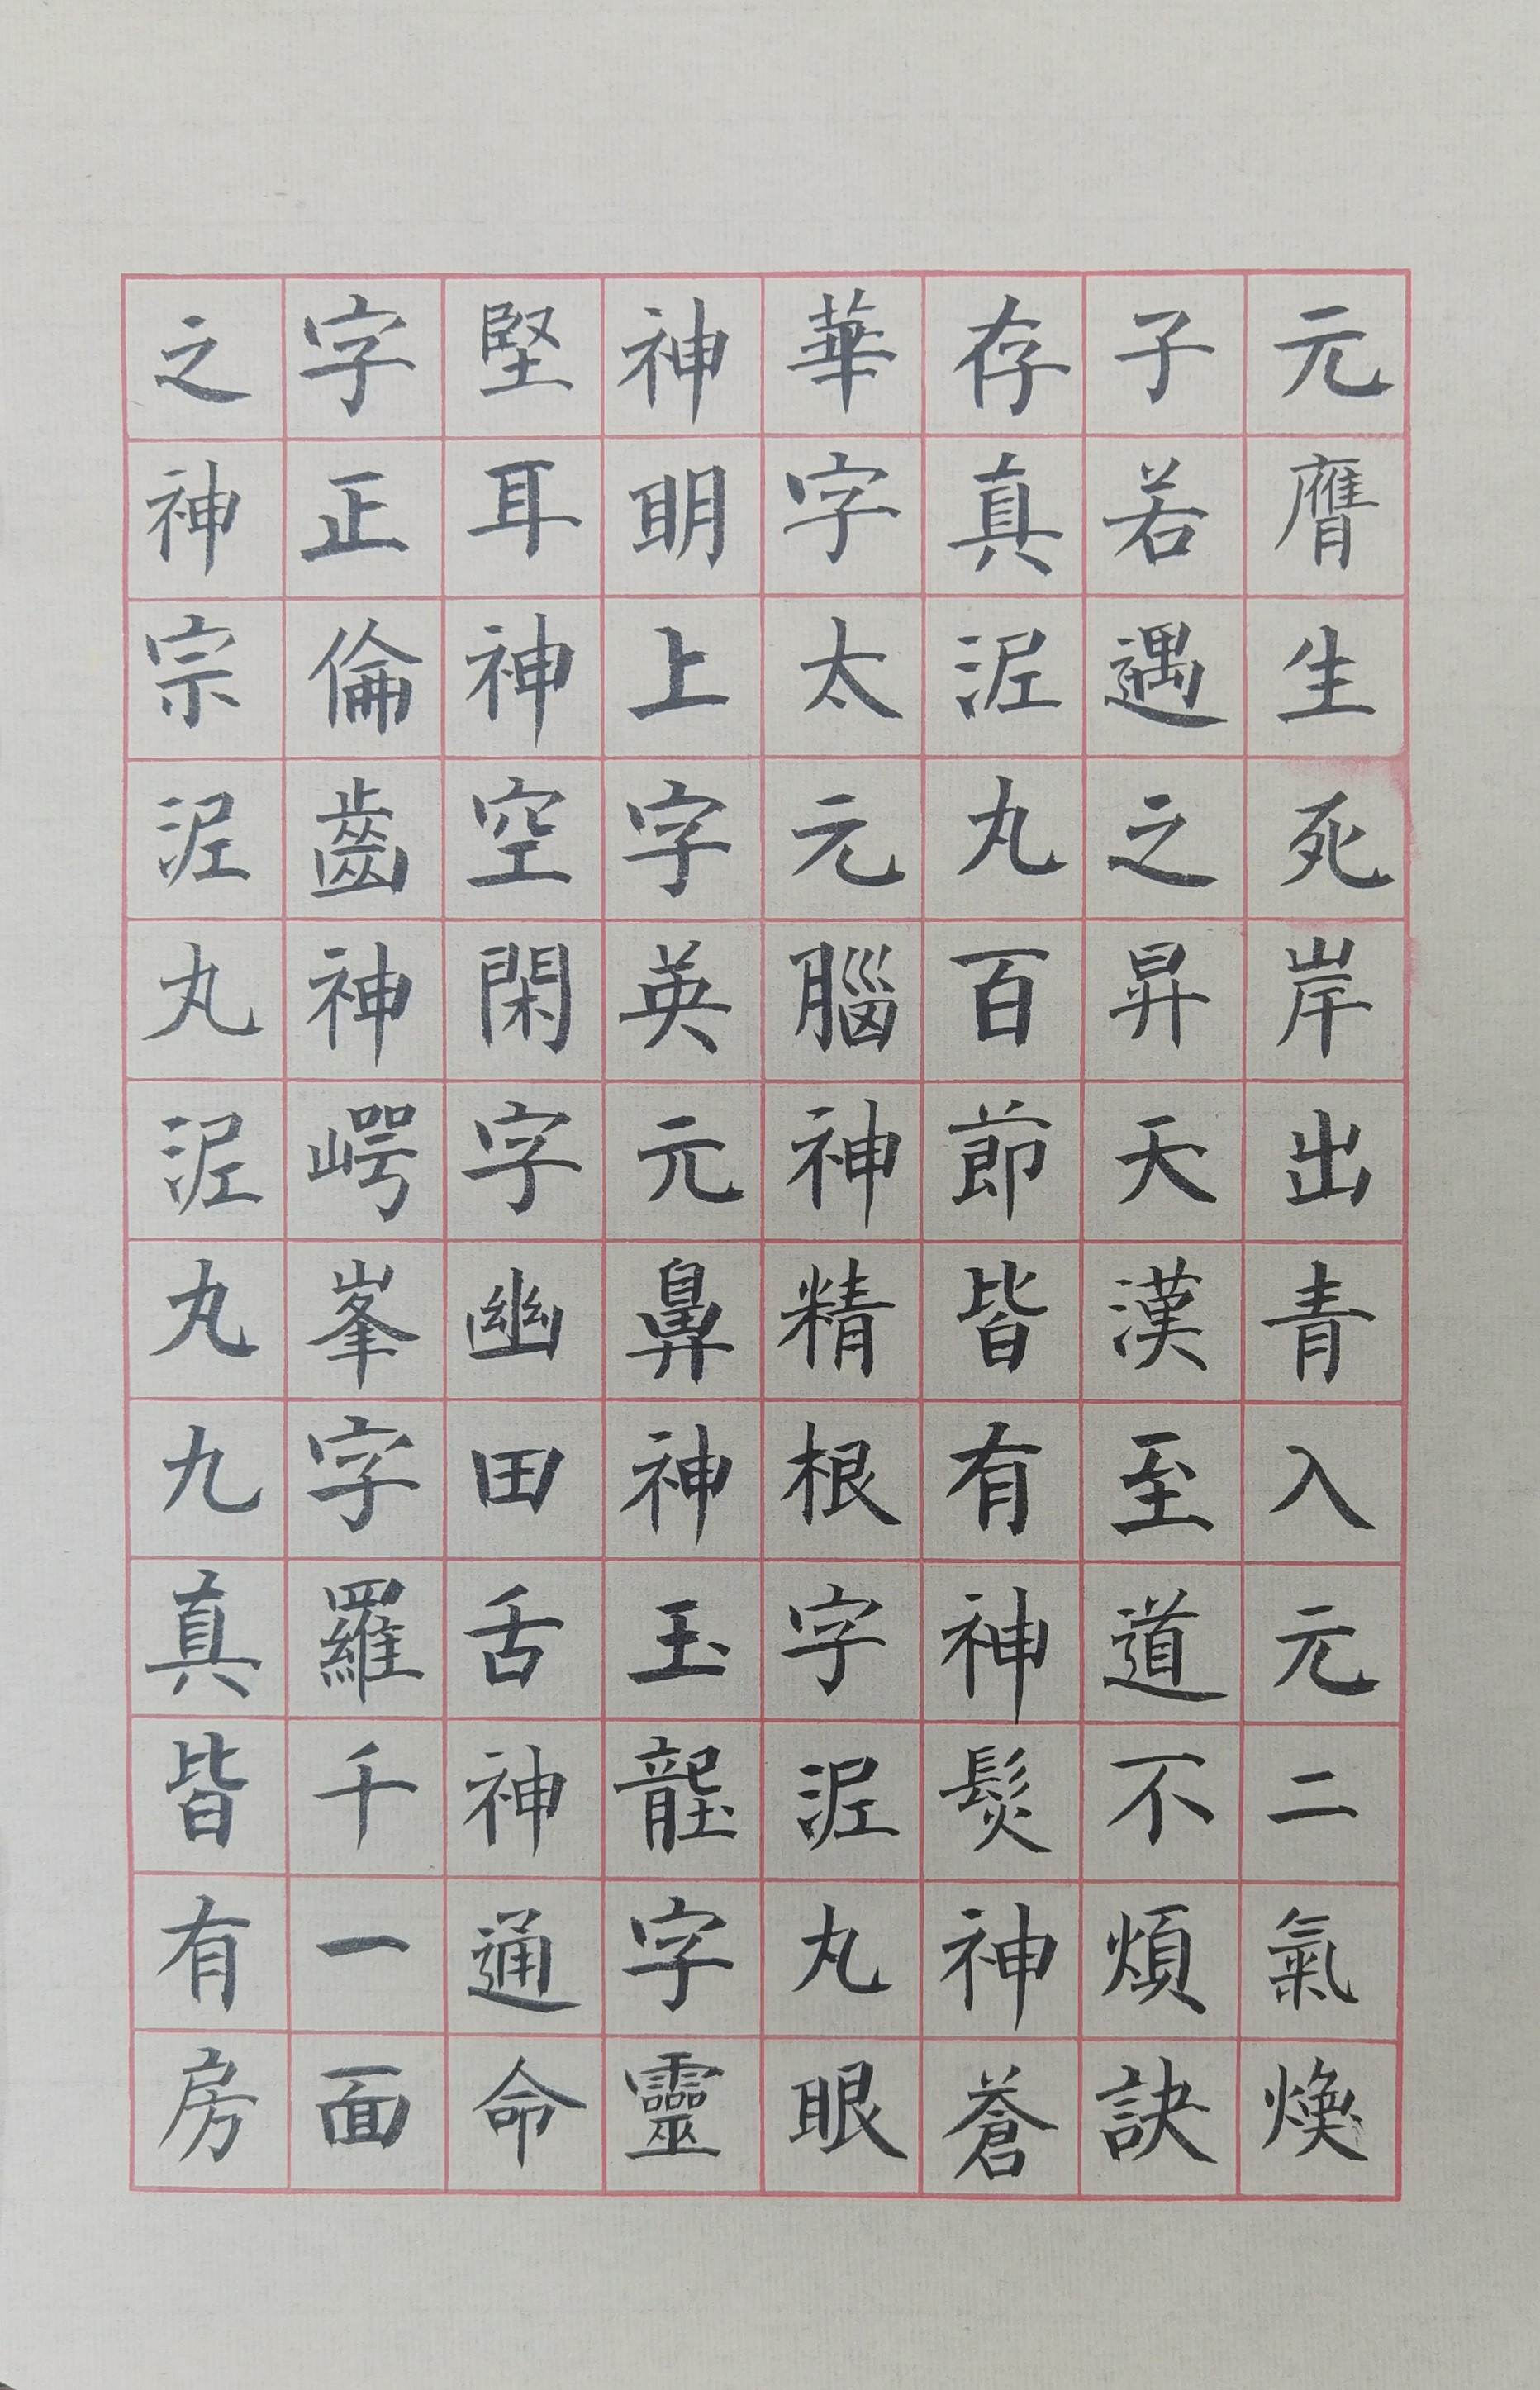 元膺生死岸出青入元二氣煥
子若遇之昇天漢至道不煩訣
存真泥丸百節皆有神髮神蒼
華字太元腦神精根字泥丸眼
神明上字英元鼻神玉壟字靈
堅耳神空閑字幽田舌神通命
字正倫齒神崿峯字羅千一面
之神宗泥丸泥丸九真皆有房